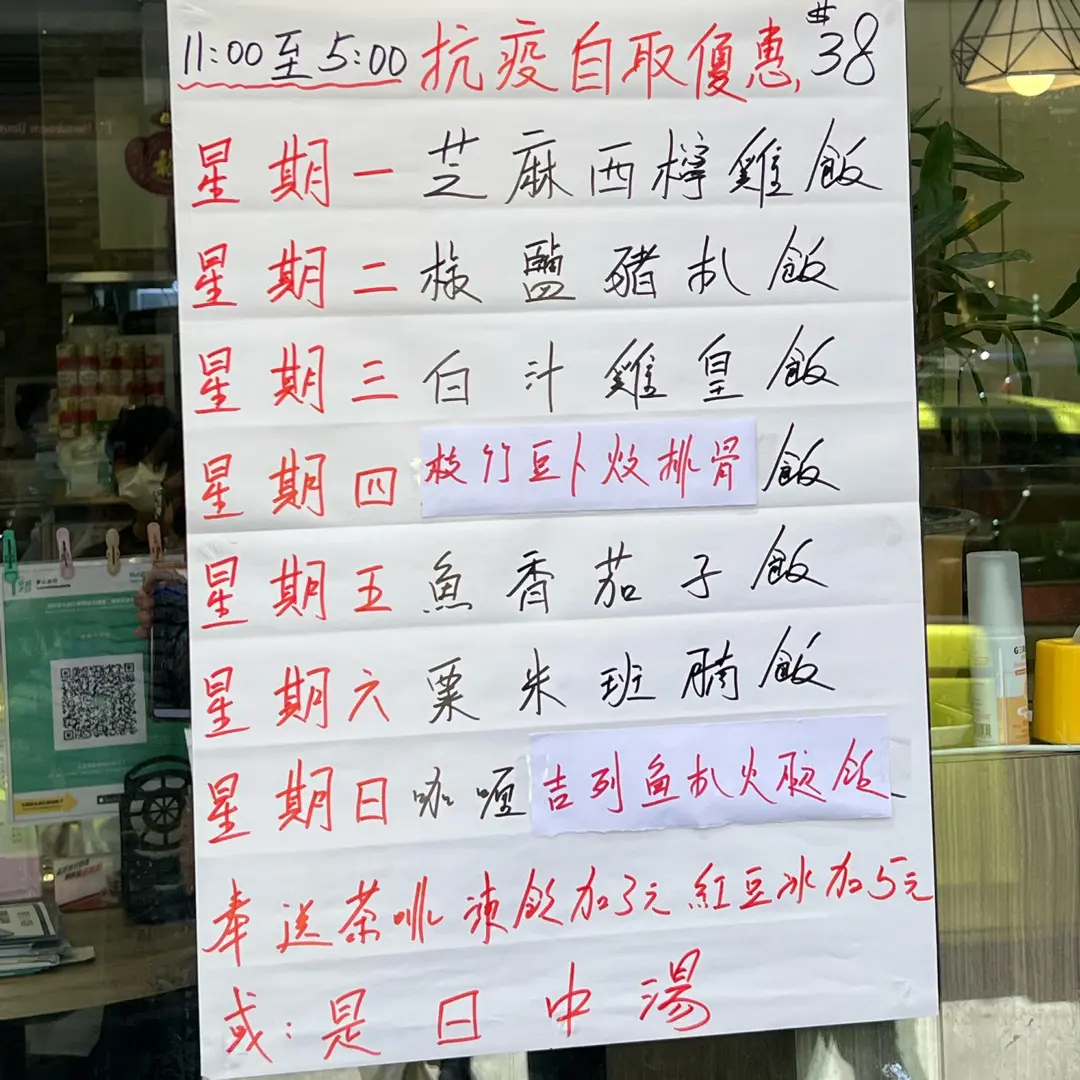 11:00至5:00 抗疫自取優惠 $38
星期一芝麻西檸雞飯
星期二椒鹽豬扒飯
星期三白汁雞皇飯
星期四枝竹豆卜炆排骨飯
星期五魚香茄子飯
星期六粟米班腩飯
星期日咖喱吉列魚扒火腿飯
奉送茶啡 凍飲加3元 紅豆冰加5元
或：是日中湯